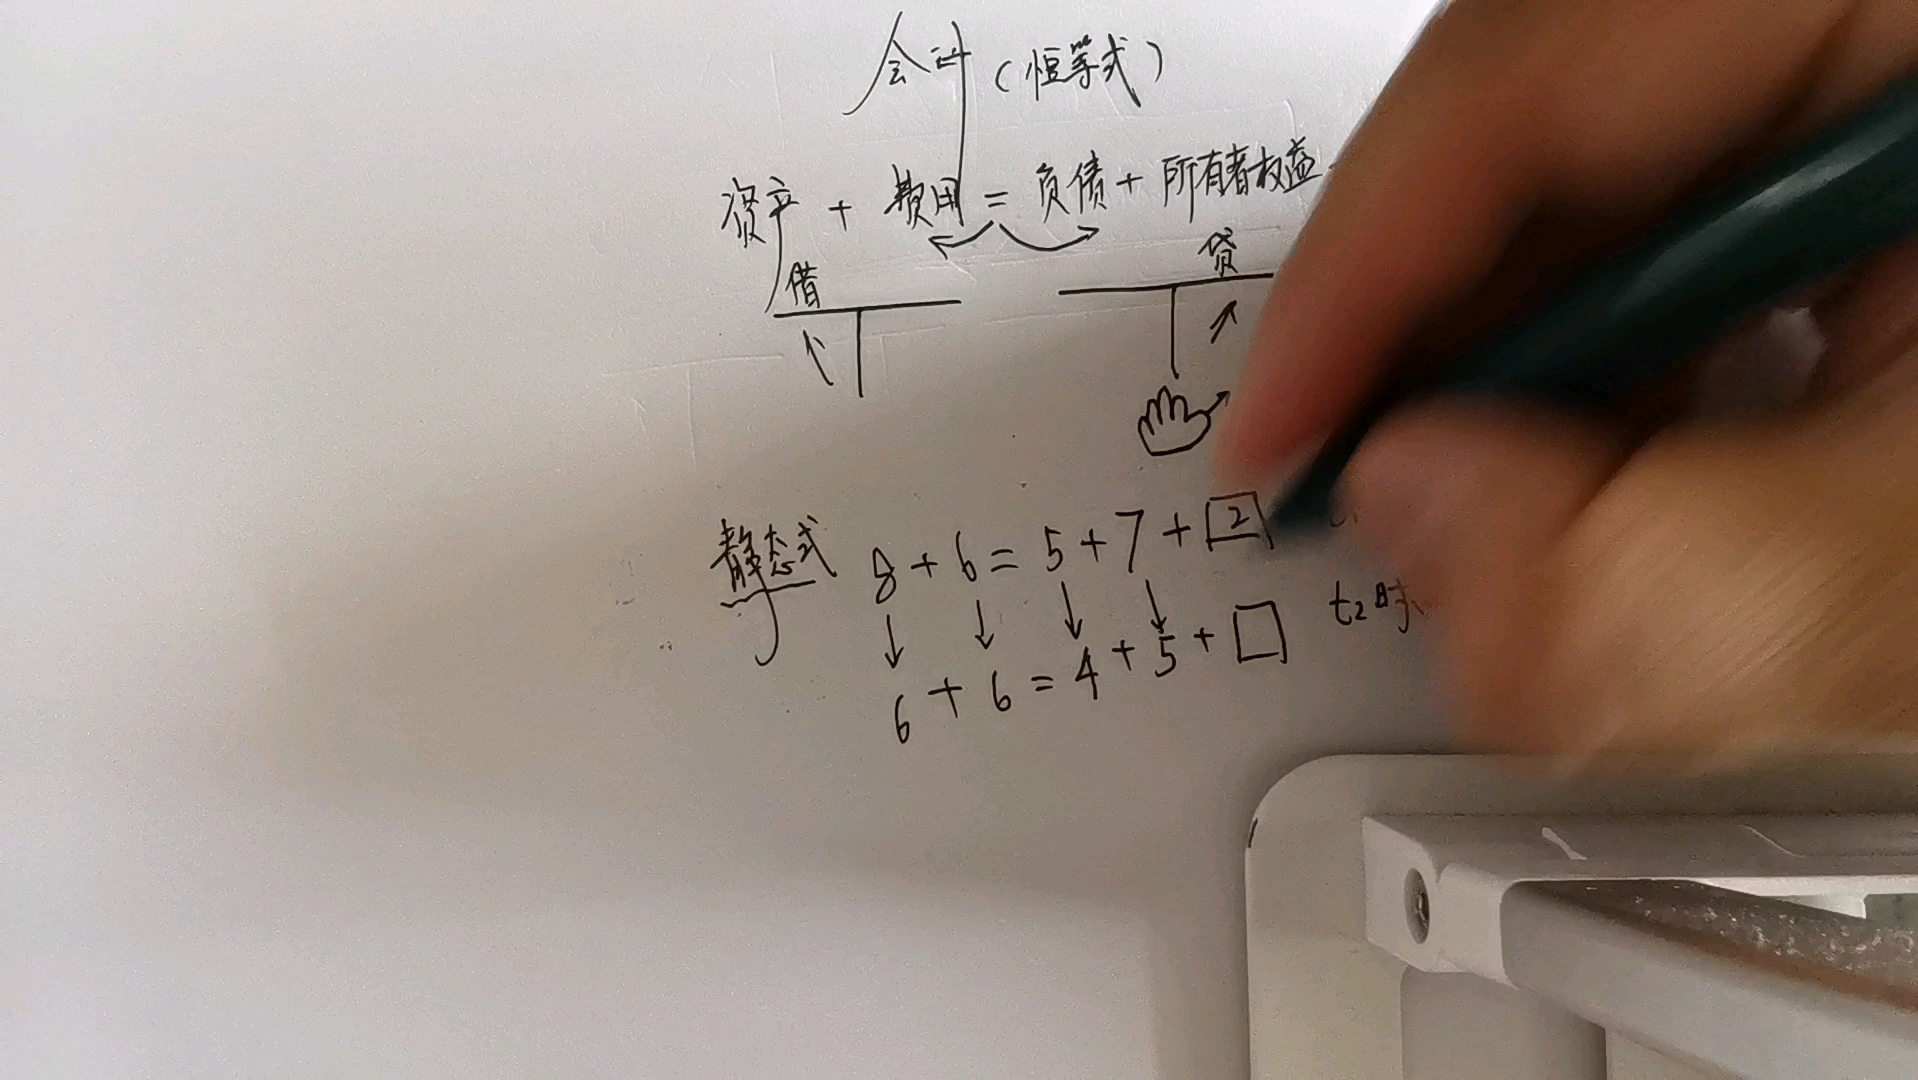 会计（恒等式）
资产 + 费用 = 负债 + 所有者权益
借 贷
静态式 8 + 6 = 5 + 7 + 2
t₂时
6 + 6 = 4 + 5 + □